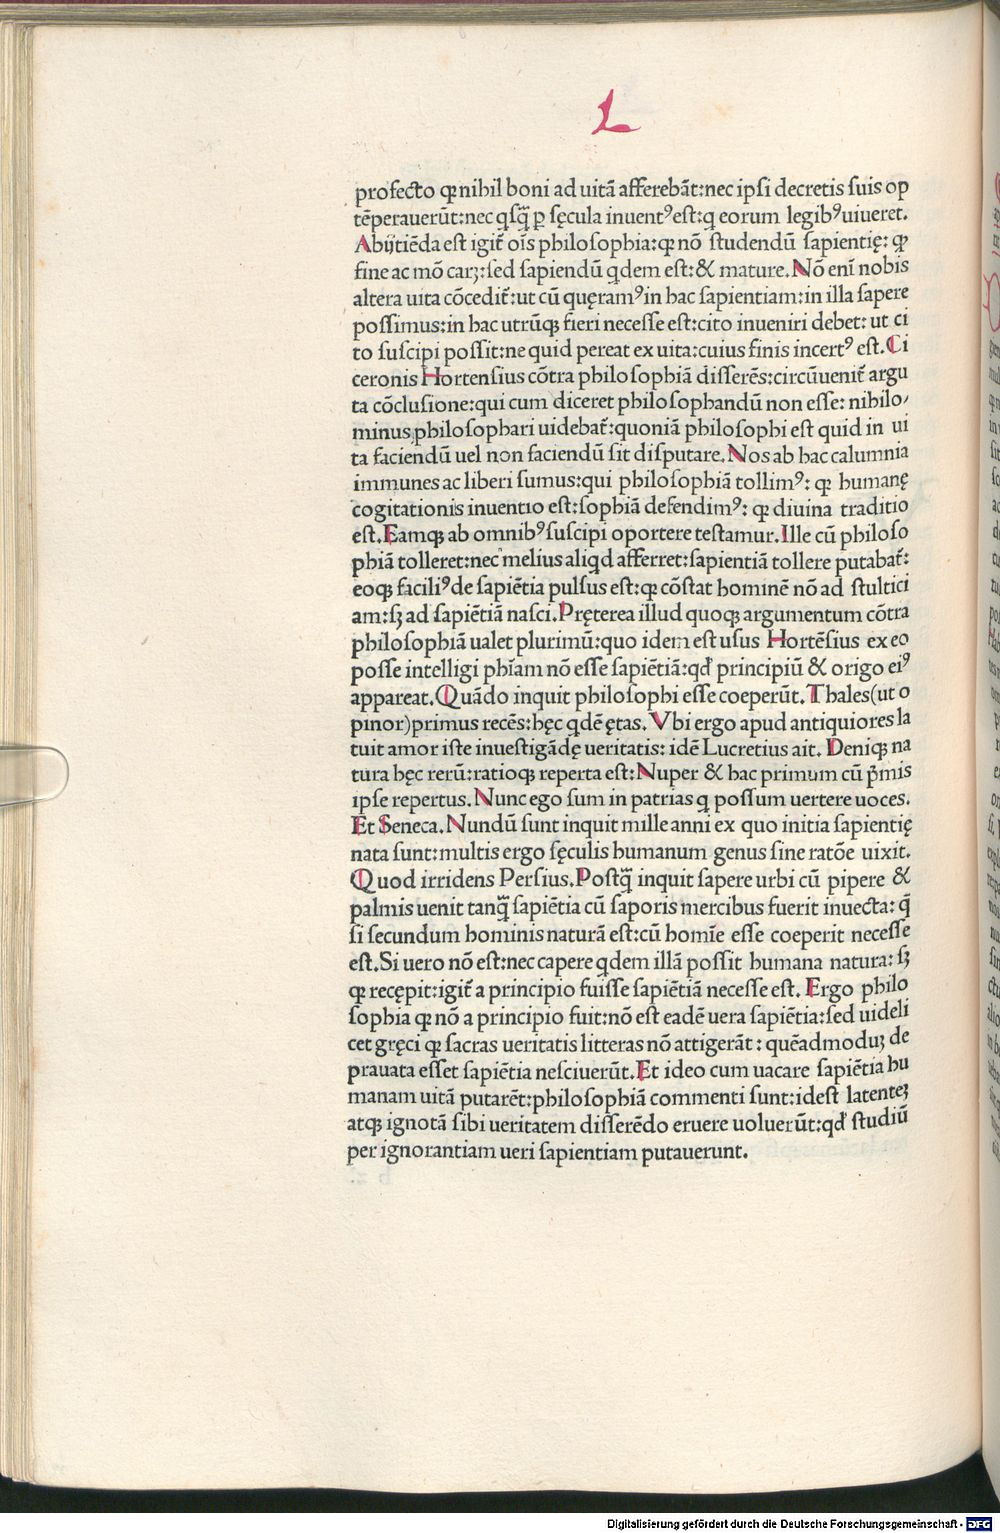 L
profecto ꝙ nihil boni ad uitā afferebāt:nec ipsi decretis suis op
tēperauerūt:nec qsq̄ꝫ ꝑ sęcula inuentꝰ est:q eorum legibꝰ uiueret.
Abijtiēda est igit̄ oīs philosophia:ꝙ nō studendū sapientię: ꝙ
fine ac mō caꝫ:sed sapiendū qdem est:& mature. Nō eni nobis
altera uita cōcedit̄:ut cū quęramꝰ in hac sapientiam:in illa sapere
possimus:in hac utrūqꝫ fieri necesse est:cito inueniri debet: ut ci
to suscipi possit:ne quid pereat ex uita:cuius finis incertꝰ est. Ci
ceronis Hortensius cōtra philosophiā disserēs:circūuenit̄ argu
ta cōclusione:qui cum diceret philosophandū non esse: nihilo/
minus philosophari uidebat̄:quoniā philosophi est quid in ui
ta faciendū uel non faciendū sit disputare. Nos ab hac calumnia
immunes ac liberi sumus:qui philosophiā tollimꝰ: ꝙ humanę
cogitationis inuentio est:sophiā defendimꝰ: ꝙ diuina traditio
est. Eamqꝫ ab omnibꝰ suscipi oportere testamur. Ille cū philoso
phiā tolleret:nec melius aliqd afferret:sapientiā tollere putabat̄:
eoqꝫ faciliꝰ de sapiētia pulsus est:ꝙ cōstat hominē nō ad stultici
am:sꝫ ad sapiētiā nasci. Pręterea illud quoqꝫ argumentum cōtra
philosophiā ualet plurimū:quo idem est usus Hortēsius ex eo
posse intelligi phīam nō esse sapiētiā:qđ principiū & origo eiꝰ
appareat. Quādo inquit philosophi esse coeperūt. Thales(ut o
pinor)primus recēs:hęc qdē ętas. Vbi ergo apud antiquiores la
tuit amor iste inuestigādę ueritatis: idē Lucretius ait. Deniqꝫ na
tura hęc rerū:ratioqꝫ reperta est: Nuper & hac primum cū p̄mis
ipse repertus. Nunc ego sum in patrias q possum uertere uoces.
Et Seneca. Nundū sunt inquit mille anni ex quo initia sapientię
nata sunt:multis ergo sęculis humanum genus sine ratōe uixit.
Quod irridens Persius. Postq̄ꝫ inquit sapere urbi cū pipere &
palmis uenit tanq̄ꝫ sapiētia cū saporis mercibus fuerit inuecta: q̄
si secundum hominis naturā est:cū homīe esse coeperit necesse
est. Si uero nō est:nec capere qdem illā possit humana natura: sꝫ
ꝙ recępit:igit̄ a principio fuisse sapiētiā necesse est. Ergo philo
sophia ꝙ nō a principio fuit:nō est eadē uera sapiētia:sed uideli
cet gręci ꝙ sacras ueritatis litteras nō attigerāt: quēadmoduꝫ de
prauata esset sapiētia nesciuerūt. Et ideo cum uacare sapiētia hu
manam uitā putarēt:philosophiā commenti sunt:idest latenteꝫ
atqꝫ ignotā sibi ueritatem disserēdo eruere uoluerūt:qđ studiū
per ignorantiam ueri sapientiam putauerunt.
Digitalisierung gefördert durch die Deutsche Forschungsgemeinschaft - DFG